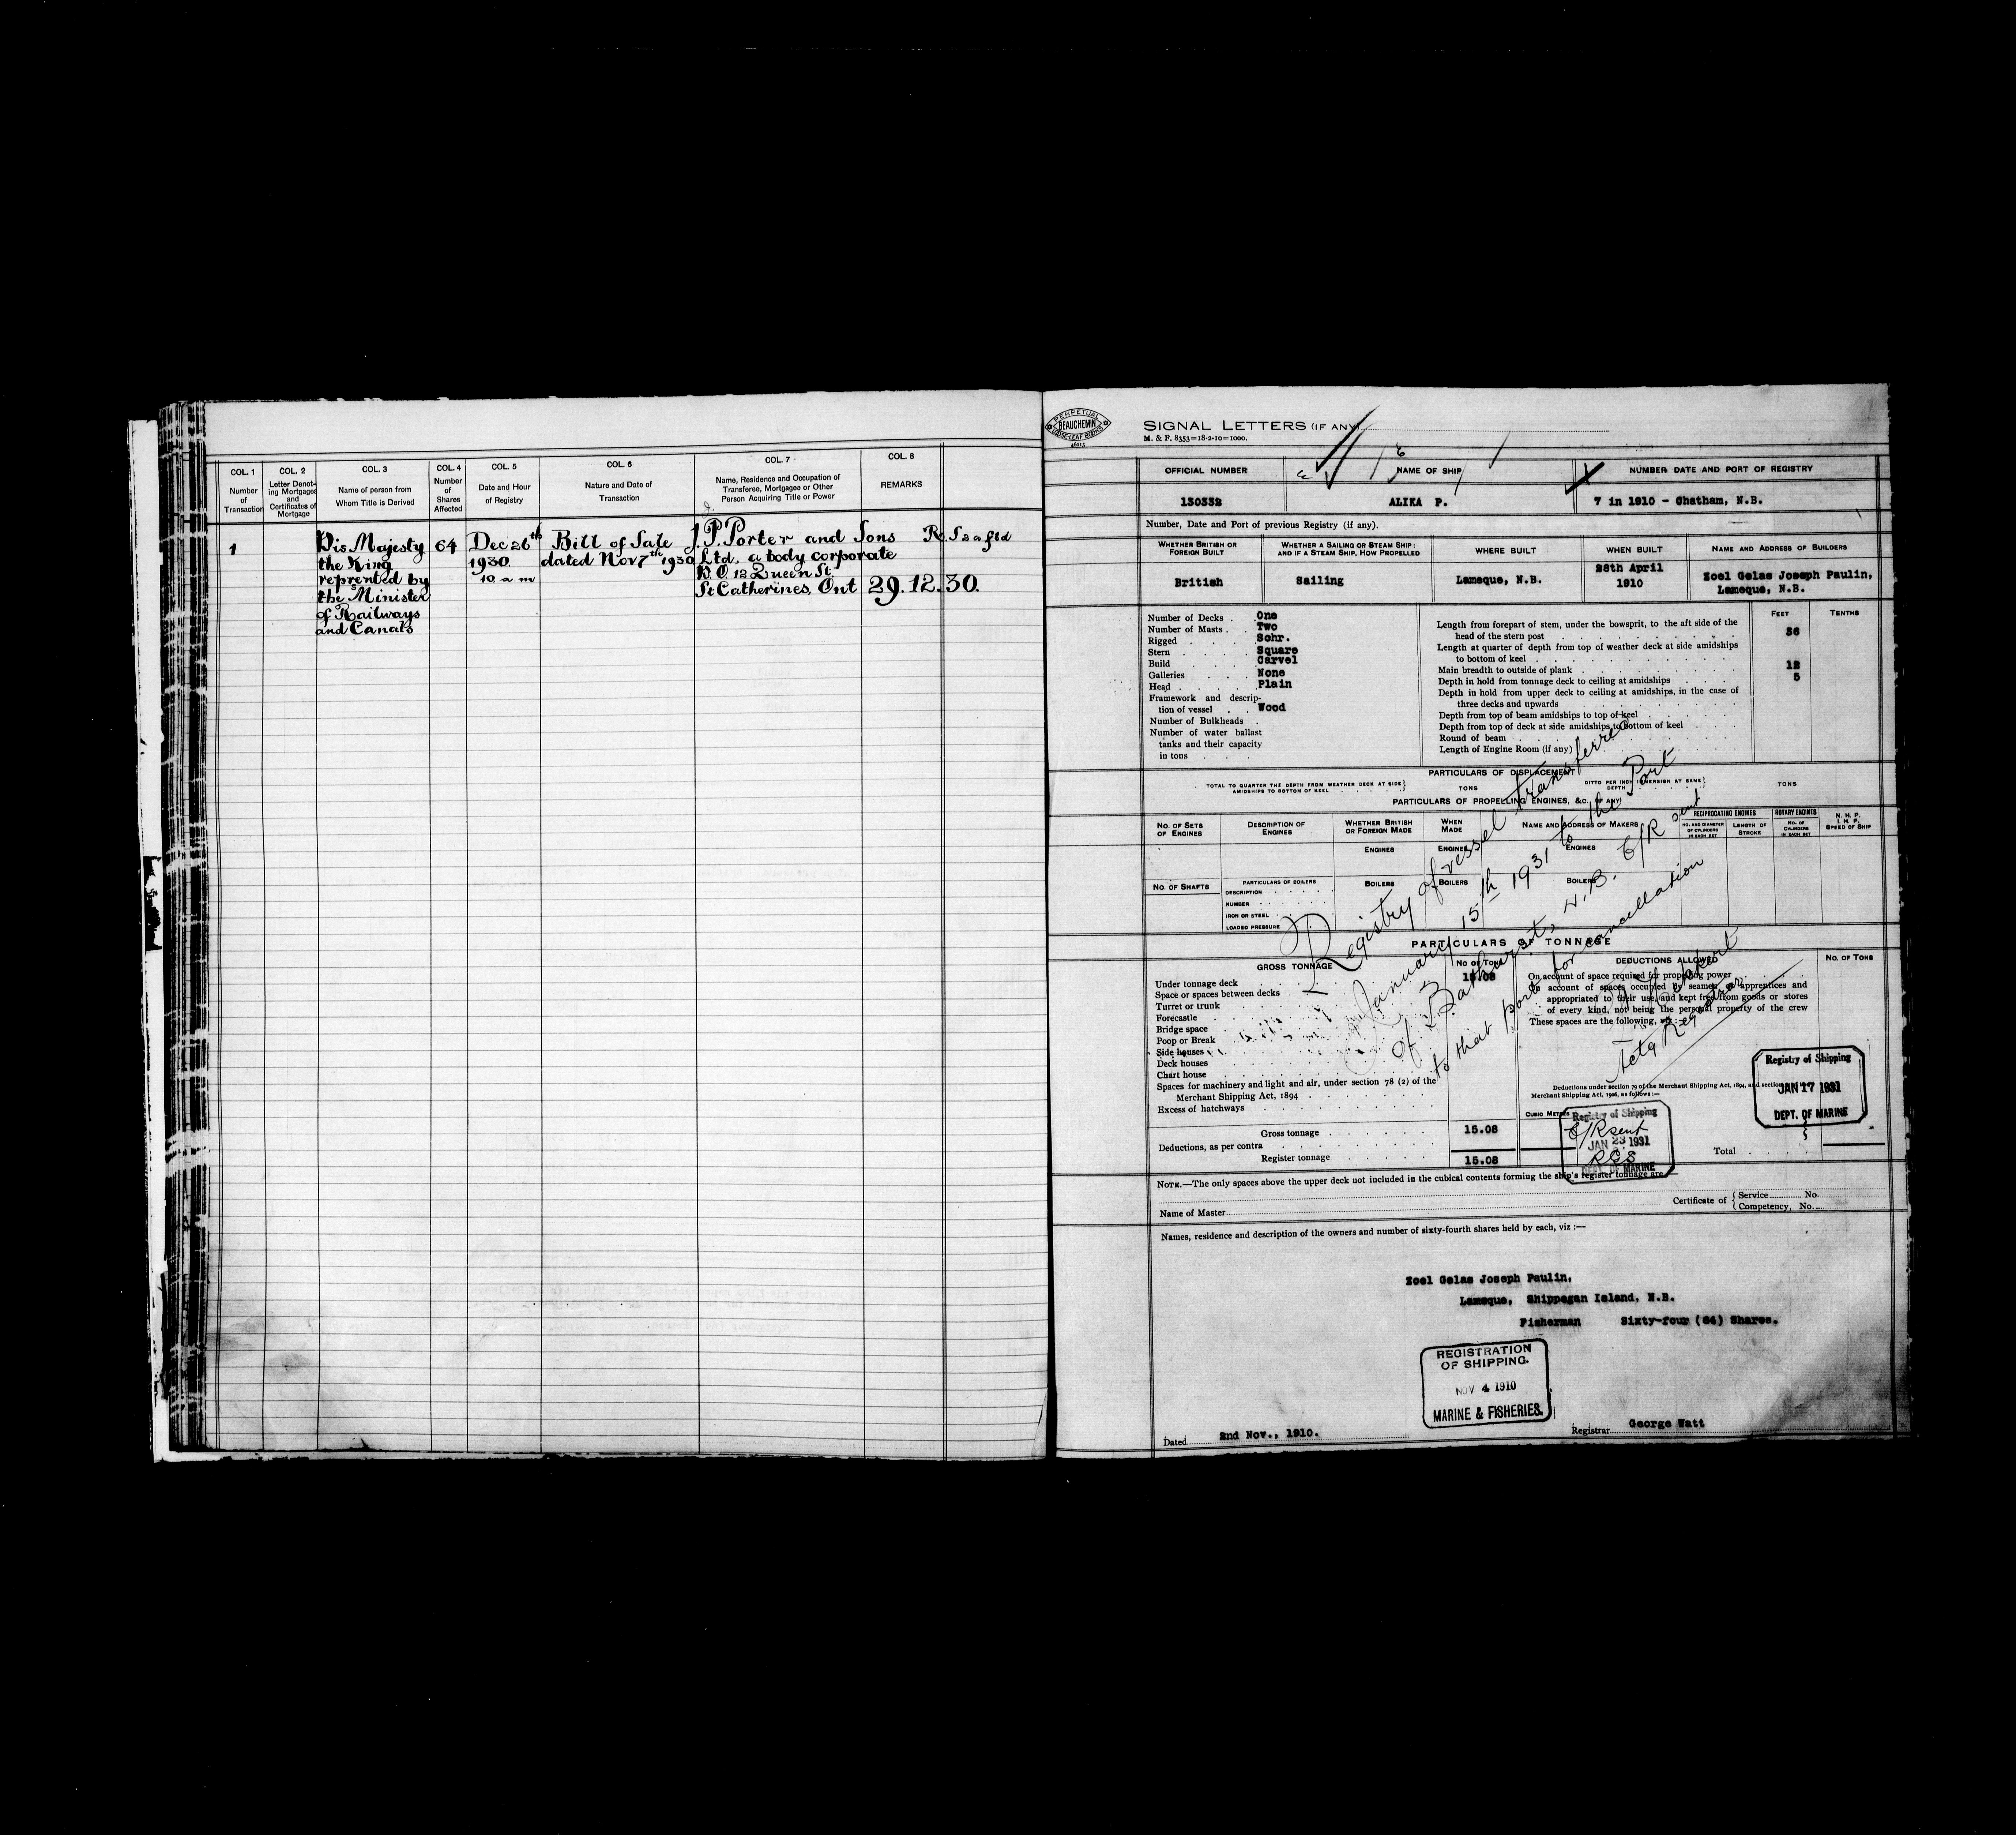 COL. 1
Number
of
Transaction
COL. 2
Letter Denot-
ing Mortgages
and
Certificates of
Mortgage
COL. 3
Name of person from
Whom Title is Derived
COL. 4
Number
of
Shares
Affected
COL. 5
Date and Hour
of Registry
COL. 6
Nature and Date of
Transaction
COL. 7
Name, Residence and Occupation of
Transferee, Mortgagee or Other
Person Acquiring Title or Power
COL. 8
REMARKS
1
His Majesty
the King
reprented by
the Minister
of Railways
and Canals
64
Dec 26th
1930
10 a m
Bill of Sale
dated Nov 7th 1930
J. P. Porter and Sons
Ltd, a body corporate
H. O. 12 Queen St
St Catherines, Ont
29.12.30.
PERPETUAL
BEAUCHEMIN
LOOSE-LEAF BOOKS
SIGNAL LETTERS (IF ANY)
M. & F. 8353=18-2-10=1000.
OFFICIAL NUMBER
NAME OF SHIP
NUMBER DATE AND PORT OF REGISTRY
130332
ALIKA P.
7 in 1910 - Chatham, N.B.
Number, Date and Port of previous Registry (if any).
WHETHER BRITISH OR
FOREIGN BUILT
WHETHER A SAILING OR STEAM SHIP;
AND IF A STEAM SHIP, HOW PROPELLED
WHERE BUILT
WHEN BUILT
NAME AND ADDRESS OF BUILDERS
British
Sailing
Lameque, N.B.
28th April
1910
Zoel Gelas Joseph Paulin,
Lameque, N.B.
FEET
TENTHS
Number of Decks . . One
Number of Masts . . Two
Rigged . . . . Schr.
Stern . . . . Square
Build . . . . Carvel
Galleries . . . None
Head . . . . Plain
Framework and descrip-
tion of vessel . . Wood
Number of Bulkheads .
Number of water ballast
tanks and their capacity
in tons . . .
Length from forepart of stem, under the bowsprit, to the aft side of the
head of the stern post . . . 36
Length at quarter of depth from top of weather deck at side amidships
to bottom of keel . . .
Main breadth to outside of plank . . . 12
Depth in hold from tonnage deck to ceiling at amidships . . . 5
Depth in hold from upper deck to ceiling at amidships, in the case of
three decks and upwards . . .
Depth from top of beam amidships to top of keel . . .
Depth from top of deck at side amidships to bottom of keel . . .
Round of beam . . .
Length of Engine Room (if any) . . .
PARTICULARS OF DISPLACEMENT
TOTAL TO QUARTER THE DEPTH FROM WEATHER DECK AT SIDE
AMIDSHIPS TO BOTTOM OF KEEL
TONS
DITTO PER INCH IMMERSION AT SAME
DEPTH
TONS
PARTICULARS OF PROPELLING ENGINES, &C. (IF ANY)
NO. OF SETS
OF ENGINES
DESCRIPTION OF
ENGINES
WHETHER BRITISH
OR FOREIGN MADE
WHEN
MADE
NAME AND ADDRESS OF MAKERS
RECIPROCATING ENGINES
NO. AND DIAMETER
OF CYLINDERS
IN EACH SET
LENGTH OF
STROKE
ROTARY ENGINES
NO. OF
CYLINDERS
IN EACH SET
N. H. P.
I. H. P.
SPEED OF SHIP
ENGINES
ENGINES
ENGINES
NO. OF SHAFTS
PARTICULARS OF BOILERS
DESCRIPTION
NUMBER
IRON OR STEEL
LOADED PRESSURE
BOILERS
BOILERS
BOILERS
Registry of vessel transferred
January 15th 1931 to the Port
of Bathurst, N.B. C/R sent
to that port for cancellation
Actg Registrar
PARTICULARS OF TONNAGE
GROSS TONNAGE
NO OF TONS
DEDUCTIONS ALLOWED
NO. OF TONS
Under tonnage deck . . . 15.08
Space or spaces between decks
Turret or trunk
Forecastle
Bridge space
Poop or Break
Side houses
Deck houses
Chart house
Spaces for machinery and light and air, under section 78 (2) of the
Merchant Shipping Act, 1894
Excess of hatchways
Gross tonnage . . . 15.08
Deductions, as per contra
Register tonnage . . . 15.08
On account of space required for propelling power
On account of spaces occupied by seamen or apprentices and
appropriated to their use, and kept free from goods or stores
of every kind, not being the personal property of the crew
These spaces are the following, viz :—
Deductions under section 79 of the Merchant Shipping Act, 1894, and section
Merchant Shipping Act, 1906, as follows :—
CUBIC METRES
Registry of Shipping
JAN 17 1931
DEPT. OF MARINE
Registry of Shipping
C/R sent
JAN 23 1931
DEPT. OF MARINE
Total
NOTE.—The only spaces above the upper deck not included in the cubical contents forming the ship's register tonnage are—
Name of Master
Certificate of
Service No.
Competency, No.
Names, residence and description of the owners and number of sixty-fourth shares held by each, viz :—
Zoel Gelas Joseph Paulin,
Lameque, Shippegan Island, N.B.
Fisherman Sixty-four (64) Shares.
REGISTRATION
OF SHIPPING.
NOV 4 1910
MARINE & FISHERIES.
Dated 2nd Nov., 1910.
Registrar George Watt